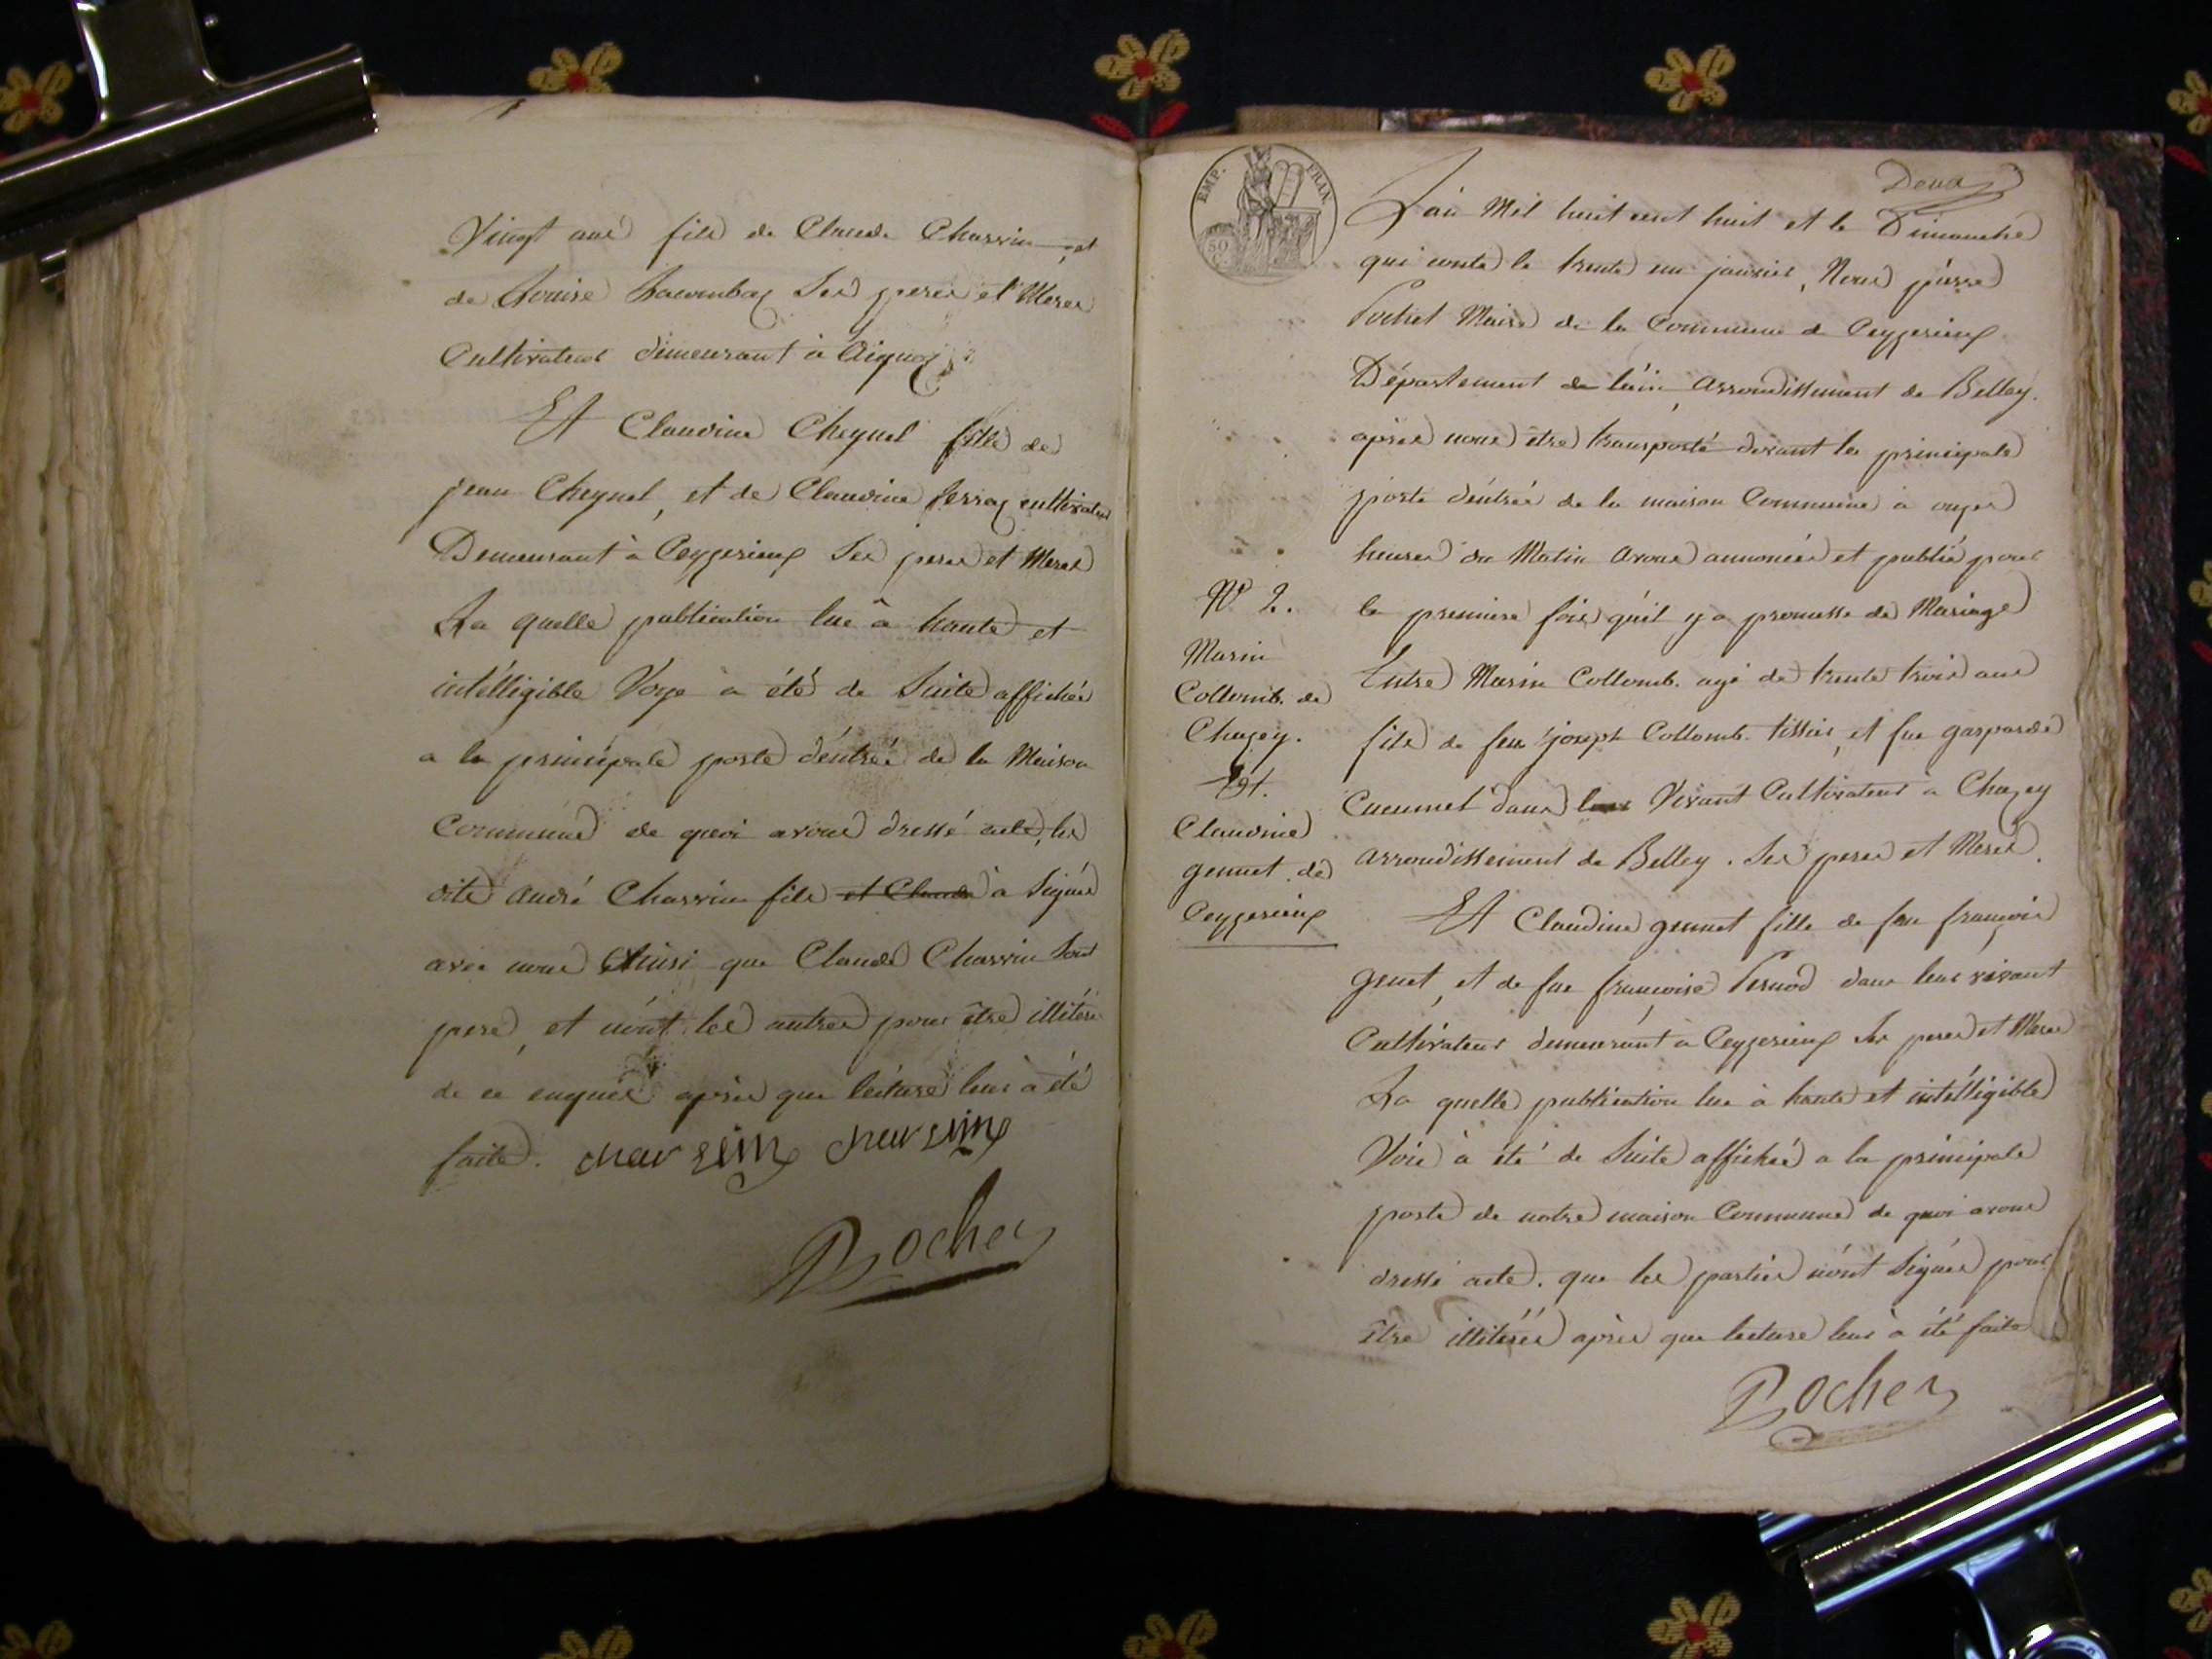 Vingt ans fils de Claude Charvin et
de Louise ses peres et Meres
Cultivateur demeurant à
Et Claudine Cheynel fille de
jean Cheynel, et de Claudine cultivateur
Demeurant à Ceyzerieux ses peres et Meres
La quelle publication lue à haute et
intélligible Voye a été de Suite affichée
a la principale porte déntrée de la Maison
Commune de quoi avons dressé acte, les
dits André Charvin fils et Claude à Signés
avec nous Ainsi que Claude Charvin Son
pere, et nónt les autres pour être illitéré
de ce enquis après que lecture leur à été
faite. charvin charvin
Pochet
EMP. FRAN.
50 C.
Deux
Lán Mil huit cent huit et le Dimanche
qui conte le trente un janvier, Nous pierre
Pochet Maire de la Commune de Ceyzerieux
Département de láin, arrondissement de Belley.
après nous être transporté devant la principale
porte déntrée de la maison Commune à onze
heures du Matin avons annoncée et publié pour
la premiere fois quíl y a promesse de Mariage
Entre Marin Collomb. agé de trente trois ans
fils de feu joseph Collomb. tissier, et fue gasparde
dans leur Vivant Cultivateur à Chazey
arrondissement de Belley. Ses peres et Meres.
Et Claudine gennet fille de feu françois
genet, et de fue françoise Pernod dans leur vivant
Cultivateur demeurant à Ceyzerieux Ses peres et Meres
La quelle publication lue à haute et intélligible
Voie à été de Suite affichée a la principale
porte de notre maison Commune de quoi avons
dressé acte. que les parties nónt Signés pour
être illitérés après que lecture leur à été faite
Pochet
No 2.
Marin
Collomb. de
Chazey.
Et.
Claudine
gennet de
Ceyzerieux